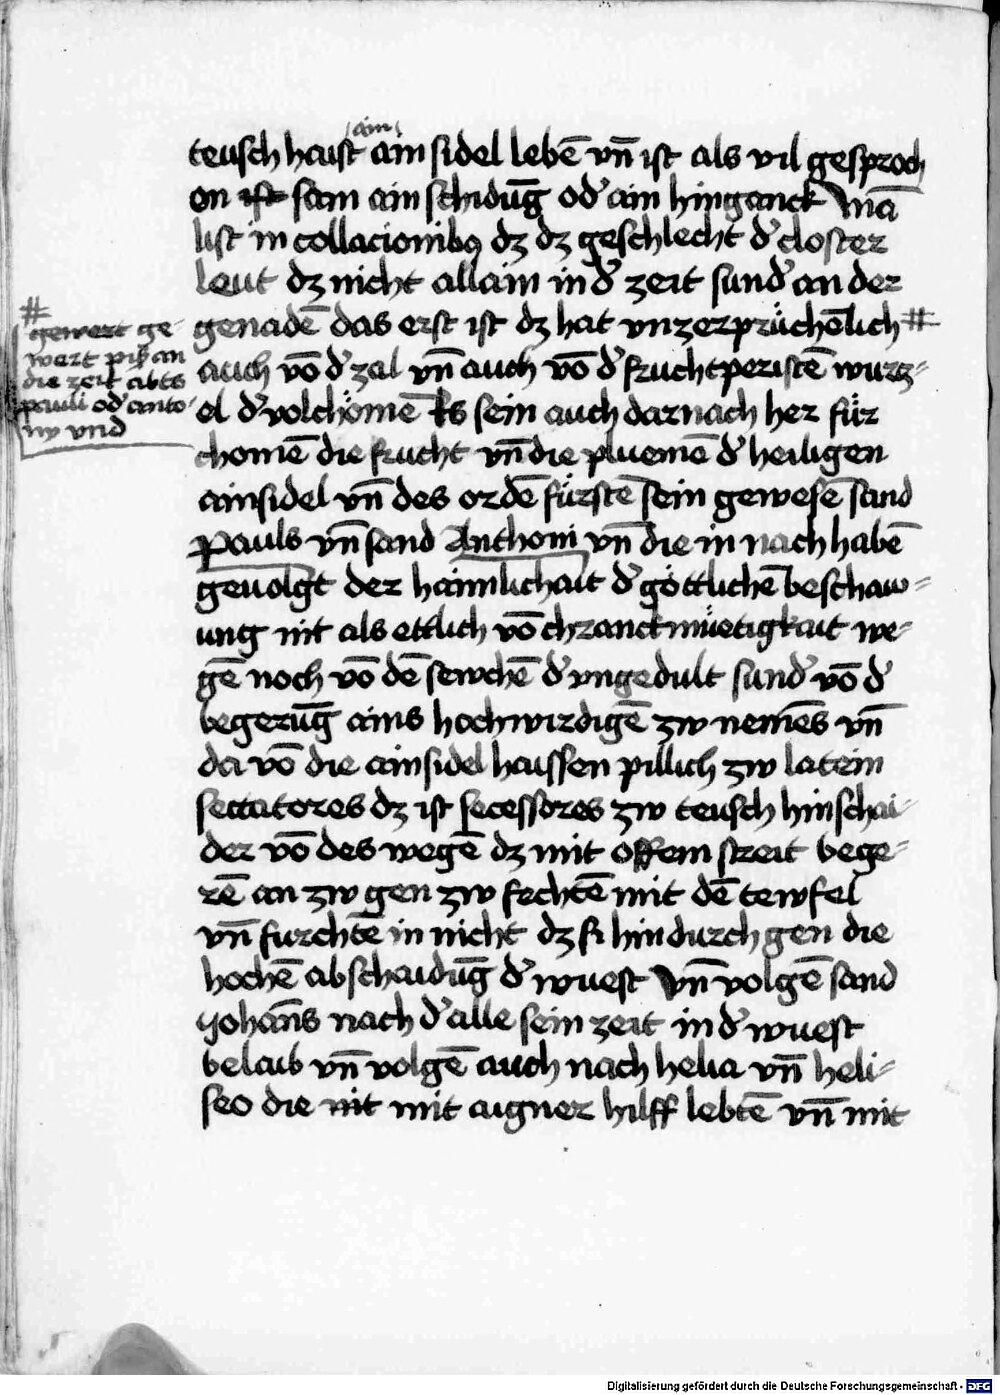 teusch haist ain ainsidel lebē vn̄ ist als vil gesproch
en ist sam ain schidūg od̄ ain hinganck Mā
list in collacionibꝰ dz dz geschlecht d̄ closter
leut dz nicht allain in d̄ zeit sund̄ an der
genadē das erst ist dz hat vnzerprüchēlich #
#
gewert ge-
wert piß an
die zeit abts
pauli od̄ anto-
ny vnd
auch vō d̄ zal vn̄ auch vō d̄ fruchtperistē wurz-
el d̄ volchömē Es sein auch darnach her für
chomē die frucht vn̄ die pluemē d̄ heiligen
ainsidel vn̄ des ordē fürstē sein gewesē sand
Pauls vn̄ sand Anthoni vn̄ die in nach habē
geuolgt der haimlichait d̄ göttlichē beschaw-
ung nit als ettlich vō chranckmüetigkait we-
gē noch vō dē sewchē d̄ vngedult sund̄ vō d̄
begerūg ains hochwirdigē zw nemēs vn̄
da vō die ainsidel haissen pillich zw latein
sectatores dz ist secessores zw teusch hinschai-
der vō des wegē dz mit offem streit bege-
rē an zw gen zw fechtē mit dē tewfel
vn̄ furchtē in nicht dz si hindurch gen die
hochē abschaidūg d̄ wuest Vn̄ volgē sand
Johān̄s nach d̄ alle sein zeit in d̄ wuest
belaib vn̄ volgē auch nach helia vn̄ heli-
seo die nit mit aigner hilff lebtē vn̄ mit
Digitalisierung gefördert durch die Deutsche Forschungsgemeinschaft - DFG